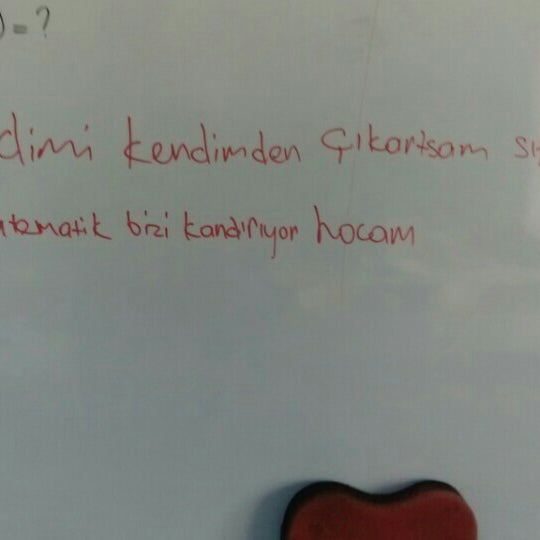 ) = ?
dimi kendimden çıkartsam sı
atematik bizi kandırıyor hocam